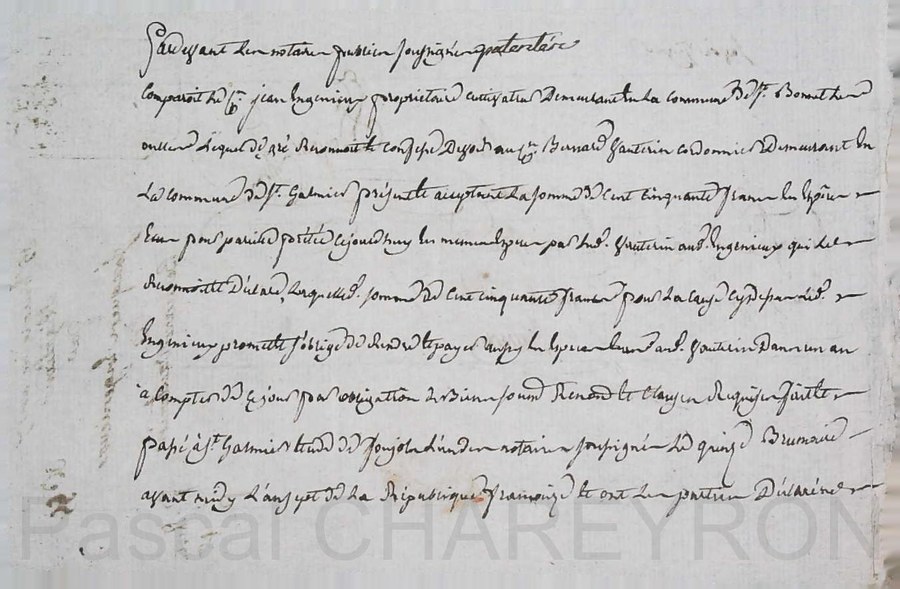 Pardevant les notaires publics soussignés patentées
Comparoit le Cn. jean Ingenieux proprietaire cultivateur demeurant en la commune de St. Bonnet les
oulles lequel de gré reconnoit et confesse devoir au Cn. Bernard Vauterin cordonnier demeurant en
la commune de St. Galmier présent et acceptant la somme de cent cinquante francs en espèces
pour pareille prêtée cejourd'huy en mêmes espèces par led. Vauterin aud. Ingenieux qui le
reconnoit et déclare, laquelle d. somme de cent cinquante francs pour la cause cy dessus led.
Ingenieux promet et s'oblige de rendre et payer aussy en espèces aud. Vauterin dans un an
à compter de ce jour par obligation de biens soumd. Renond. et clauses requises fait et
passé à St. Galmier étude de l'un des notaires soussignés le quinze Brumaire
avant midy l'an sept de la République françoise et ont les parties déclaré
Pascal CHAREYRON